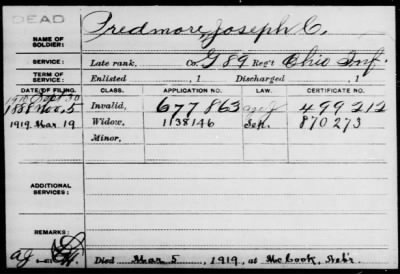 DEAD
NAME OF SOLDIER: Predmore, Joseph C.
SERVICE: Late rank, Co. G 89 Reg't Ohio Inf.
TERM OF SERVICE: Enlisted , 1 Discharged , 1
DATE OF FILING. CLASS. APPLICATION NO. LAW. CERTIFICATE NO.
Sept 30
1888 Nov. 5 Invalid, 677863 499212
1919 Mar. 19 Widow, 1138146 Sept. 870273
Minor,
ADDITIONAL SERVICES:
Died Mar. 5, 1919, at McCook, Neb'r.